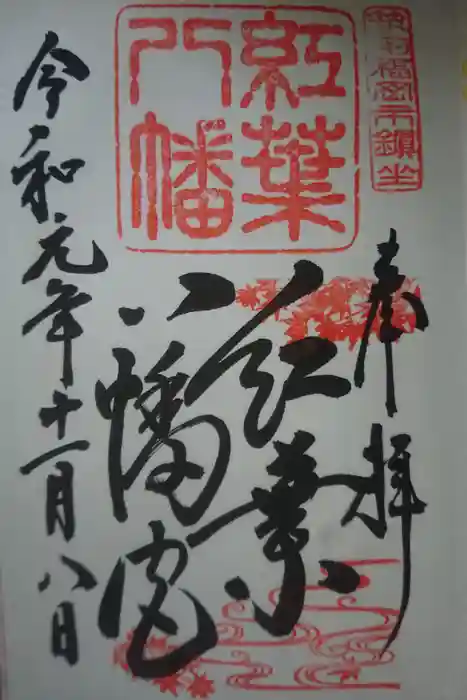 筑前福岡市鎮坐
紅葉
八幡
奉拝
紅葉
八幡宮
令和元年十一月八日